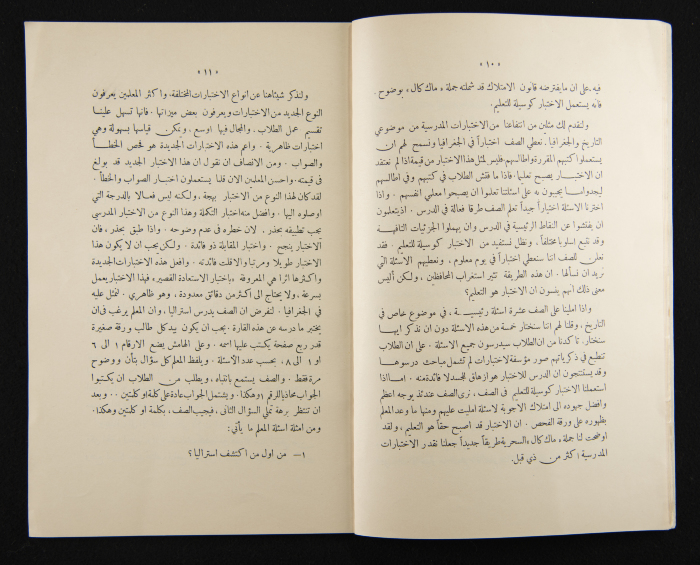 « ١٠ »
فيه على ان ما يفترضه قانون الامتلاك قد شملته جملة « ماك كال » بوضوح .
فانه يستعمل الاختبار كوسيلة للتعليم .
ولنقدم لك مثلين من انتفاعنا من الاختبارات المدرسية من موضوعي
التاريخ والجغرافيا . نعطي الصف اختباراً في الجغرافيا ونسمح لهم ان
يستعملوا كتبهم المقررة واطالسهم فليس لمثل هذا الاختبار من قيمة اذا لم نعتقد
ان الاختبار يصبح تعليما . فاذا ما فتش الطلاب في كتبهم وفي اطالسهم
ليجدوا ما يجيبون به على اسئلتنا تعلموا ان يصبحوا معلمي انفسهم . واذا
اخترنا الاسئلة اختياراً جيداً تعلم الصف طرقا فعالة في الدرس . اذ يتعلمون
ان يفتشوا عن النقاط الرئيسية في الدرس وان يهملوا الجزئيات التافهة
وقد نتبع اسلوبا مختلفاً ، ونظل نستفيد من الاختبار كوسيلة للتعليم . فقد
نعلن للصف اننا سنعطي اختباراً في يوم معلوم ، ونعطيهم الاسئلة التي
نريد ان نسألها . ان هذه الطريقة تثير استغراب المحافظين ، ولكن أليس
معنى ذلك انهم ينسون ان الاختبار هو التعليم ؟
واذا املينا على الصف عشرة اسئلة رئيسية ، في موضوع خاص في
التاريخ ، وقلنا لهم اننا سنختار خمسة من هذه الاسئلة دون ان نذكر ايها
سنختار . تأكدنا من ان الطلاب سيدرسون جميع الاسئلة . على ان الطلاب
تنطبع في ذاكراتهم صور مؤسفة لاختبارات لم تشمل مباحث درسوها
وقد يستنتجون ان الدرس للاختبار هو ازهاق للجسد لا فائدة منه . اما اذا
استعملنا الاختبار كوسيلة للتعليم في الصف ، نرى الصف عندئذ يوجه اعظم
وافضل جهوده الى امتلاك الاجوبة لاسئلة امليت عليهم ومنها ما وعد المعلم
بظهوره على ورقة الفحص . ان الاختبار قد اصبح حقاً هو التعليم ، ولقد
اوضحت لنا جملة « ماك كال » السحرية طريقاً جديداً جعلنا نقدر الاختبارات
المدرسية اكثر من ذي قبل .
« ١١ »
ولنذكر شيئاً هنا عن انواع الاختبارات المختلفة . واكثر المعلمين يعرفون
النوع الجديد من الاختبارات ويعرفون بعض ميزاتها . فانها تسهل علينا
تقسيم عمل الطلاب . والمجال فيها اوسع ، ويمكن قياسها بسهولة وهي
اختبارات ظاهرية . واعم هذه الاختبارات الجديدة هو فحص الخطأ
والصواب . ومن الانصاف ان نقول ان هذا الاختبار الجديد قد بولغ
في قيمته . واحسن المعلمين الان قلما يستعملون اختبار الصواب والخطأ .
لقد كان لهذا النوع من الاختبار بهجة ، ولكنه ليس فعالا بالدرجة التي
اوصلوه اليها . وافضل منه اختبار التكملة وهذا النوع من الاختبار المدرسي
يجب تطبيقه بحذر . لان خطره في عدم وضوحه . واذا طبق بحذر ، فان
الاختبار ينجح . واختبار المقابلة ذو فائدة . ولكن يجب ان لا يكون هذا
الاختبار طويلا ومرتبا والا قلت فائدته . وافعل هذه الاختبارات الجديدة
واكثرها اثرا هي المعروفة « باختبار الاستعادة القصير » فهذا الاختبار يعمل
بسرعة ، ولا يحتاج الى اكثر من دقائق معدودة ، وهو ظاهري . فنمثل عليه
في الجغرافيا . لنفرض ان الصف يدرس استراليا ، وان المعلم يرغب في ان
يختبر ما درسه عن هذه القارة . يجب ان يكون بيد كل طالب ورقة صغيرة
قدر ربع صفحة يكتب عليها اسمه . وعلى الهامش يضع الارقام ١ الى ٦
او ١ الى ٨ ، بحسب عدد الاسئلة . ويلفظ المعلم كل سؤال بتأن ووضوح
مرة فقط . والصف يستمع بانتباه ، ويطلب من الطلاب ان يكتبوا
الجواب محاذيا للرقم ١ وهكذا . ويشتمل الجواب عادة على كلمة او كلمتين . . وبعد
ان تنتظر برهة تملي السؤال الثاني ، فيجيب الصف ، بكلمة او كلمتين وهكذا .
ومن امثلة اسئلة المعلم ما يأتي :
١ — من اول من اكتشف استراليا ؟